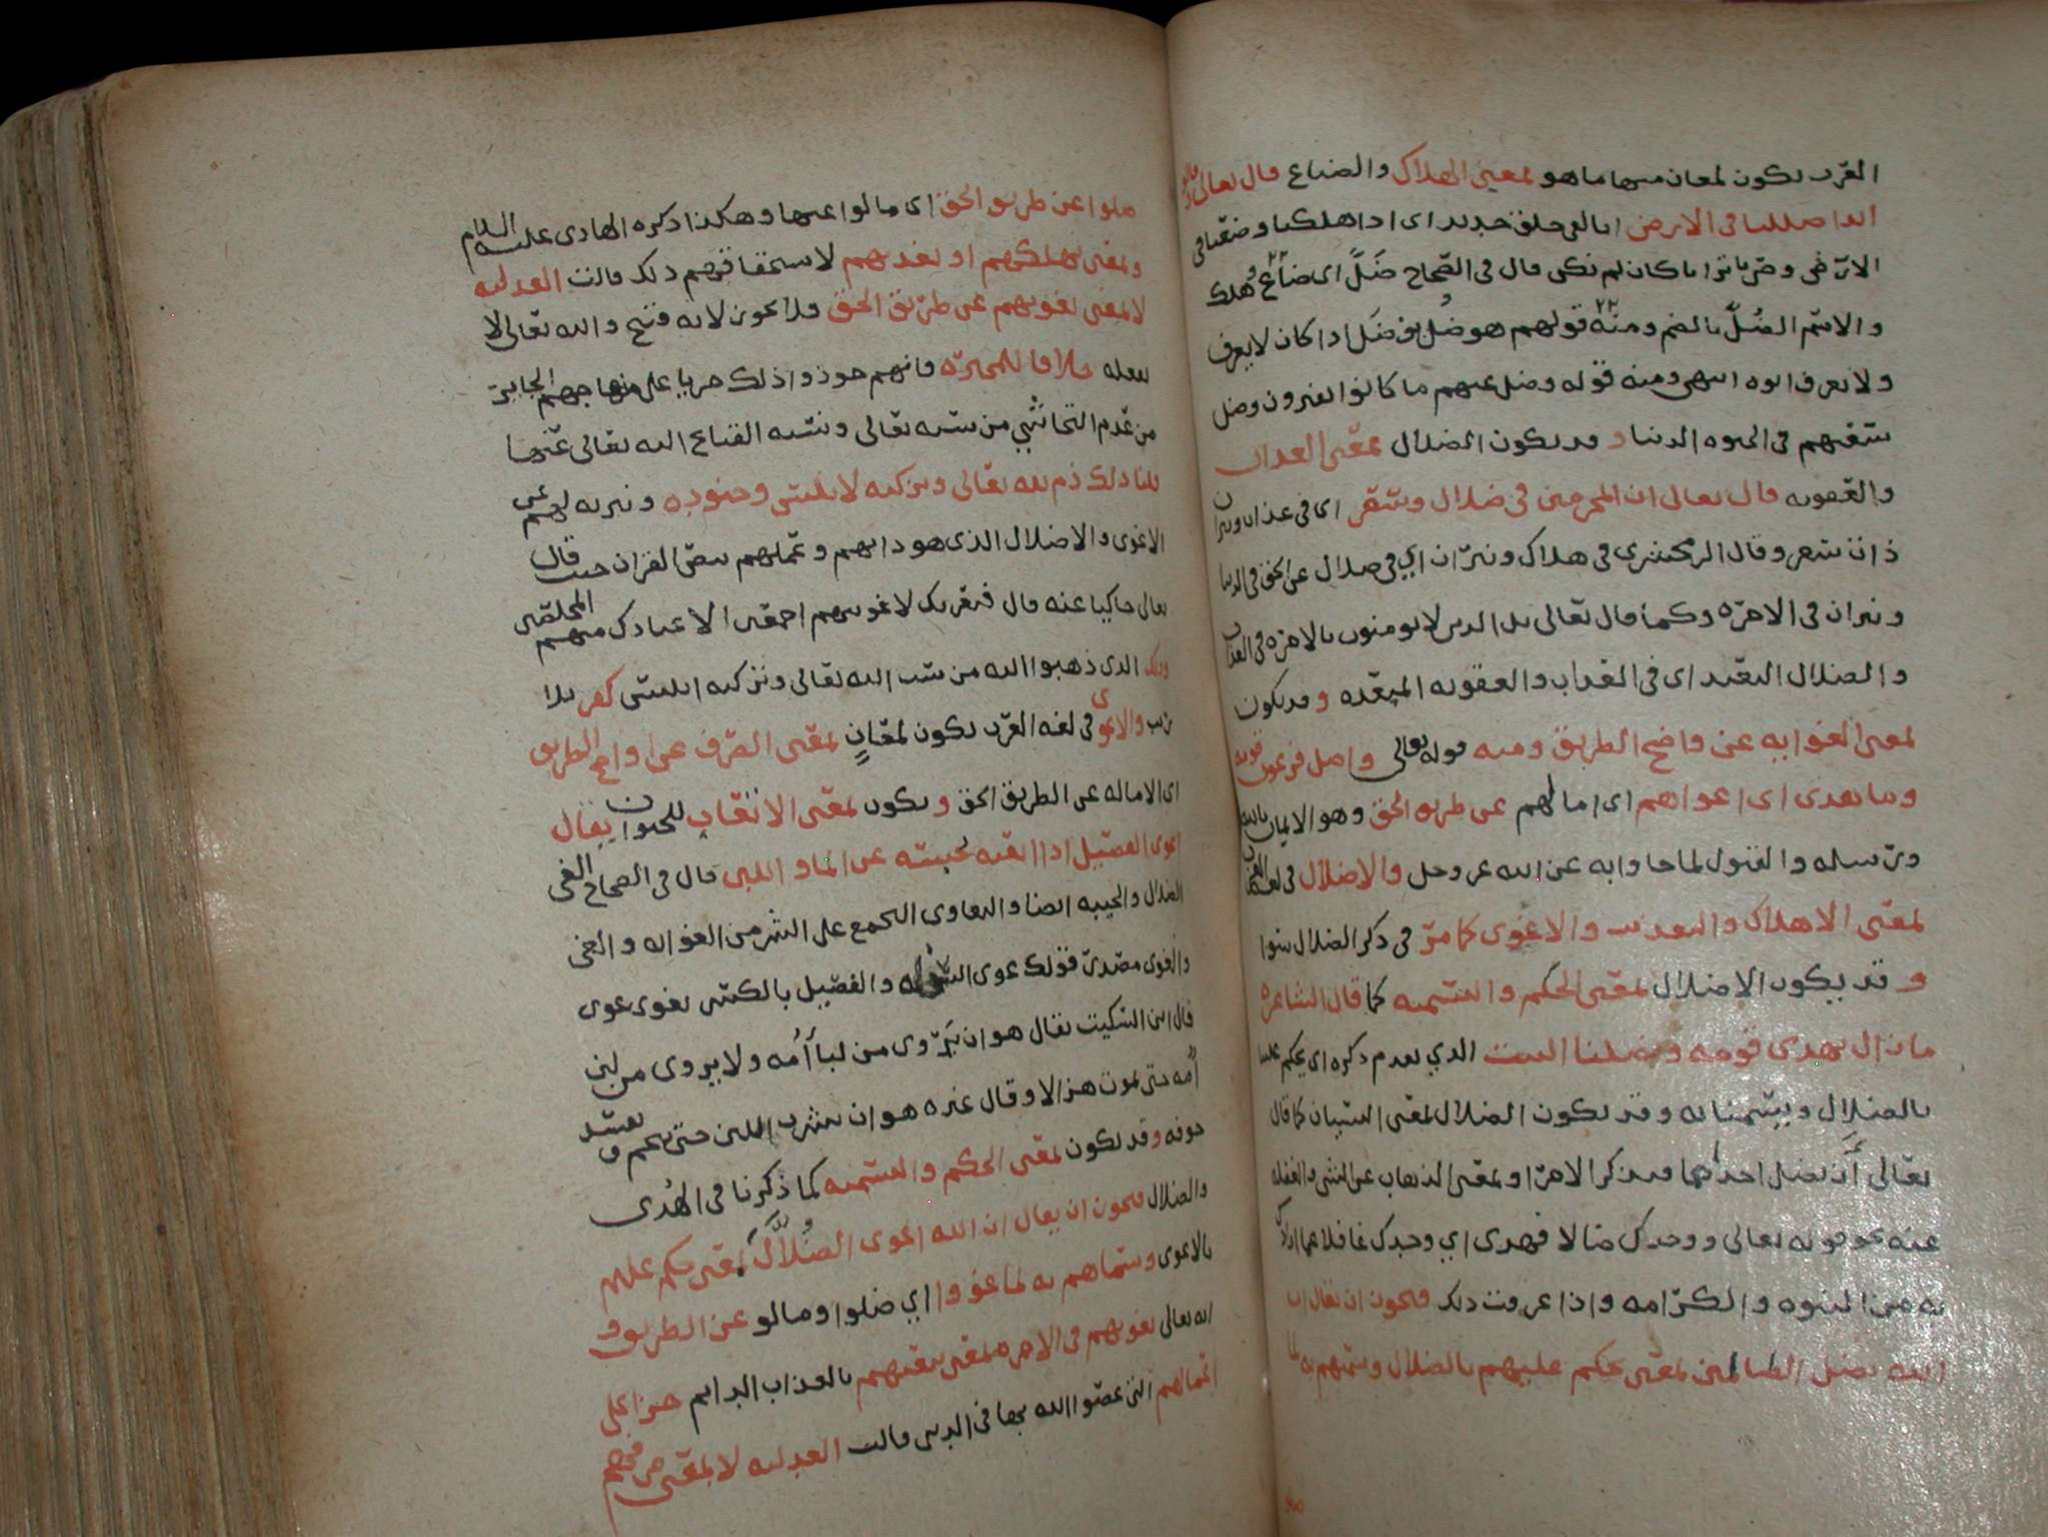 العرب يكون لمعان منها ما هو بمعنى الهلاك والضياع قال تعالى وقالوا
ائذا ضللنا في الارض انا لفي خلق جديد اى اذا هلكنا وضعنا في
الارض وصرنا ترابا كان لم نكن قال في الصحاح ضَلَّ اى ضاع وهلك
والاسم الضُلّ بالضم ومنه قولهم هو ضُل بن ضُل اذا كان لا يعرف
ولا يعرف ابوه انتهى ومنه قوله وضل عنهم ما كانوا يفترون وضل
سعيهم في الحيوه الدنيا وقد يكون الضلال بمعنى العذاب
والعقوبه قال تعالى ان المجرمين في ضلال وسعر اى في عذاب ونيران
ذات سعر وقال الزمخشرى في هلاك ونيران اي في ضلال عن الحق في الدنيا
ونيران في الاخره وكما قال تعالى بل الذين لا يومنون بالاخره في العذاب
والضلال البعيد اى في العذاب والعقوبه المبعده وقد يكون
بمعنى الغوايه عن واضح الطريق ومنه قوله تعالى واضل فرعون قومه
وما هدى اى اغواهم اى امالهم عن طريق الحق وهو الايمان بالله
ورسله والقبول لما جاوا به عن الله عز وجل والاضلال في لغه العرب
بمعنى الاهلاك والتعذيب والاغوى كما مرّ في ذكر الضلال سوا
وقد يكون الاضلال بمعنى الحكم والتسميه كما قال الشاعر
ما زال يهدى قومه ويضلنا البيت الذي تقدم ذكره اى يحكم علينا
بالضلال ويسمينا به وقد يكون الضلال بمعنى النسيان كما قال
تعالى أن تضل احداهما فتذكر الاخرى وبمعنى الذهاب عن الشى والغفله
عنه نحو قوله تعالى ووجدك ضالا فهدى اي وجدك غافلا عما ارادك
به من النبوه والكرامه واذا عرفت ذلك فيجوز ان يقال ان
الله يضل الظالمين بمعنى يحكم عليهم بالضلال ويسميهم به لما
ضلوا عن طريق الحق اى مالوا عنها وهكذا ذكره الهادى عليه السلام
وبمعنى يهلكهم او يعذبهم لاستحقاقهم ذلك قالت العدليه
لا بمعنى يغويهم عن طريق الحق فلا يجوز لانه قبيح والله تعالى لا
يفعله خلافا للمجبره فانهم جوزوا ذلك جريا على منهاجهم الجاير
من عدم التحاشي من سبه تعالى ونسبه القبايح اليه تعالى عنها
قلنا ذلك ذم لله تعالى وتزكيه لابليس وجنوده وتبريه لهم عن
الاغوى والاضلال الذى هو دابهم وعملهم بنص القران حيث قال
تعالى حاكيا عنه قال فبعزتك لاغوينهم اجمعين الا عبادك منهم المخلصين
وذلك الذى ذهبوا اليه من سب الله تعالى وتزكيه ابليس كفر بلا
ريب والاغوى في لغه العرب يكون لمعانٍ بمعنى الصرف عن واضح الطريق
اى الاماله عن الطريق الحق ويكون بمعنى الاتعاب للحيوان يقال
اغوى الفصيل اذا اتعبه بحبسه عن الماء واللبن قال في الصحاح الغي
الضلال والخيبه ايضا والتغاوى التجمع على الشر من الغوايه والغي
والغوى مصدر قولك غوى السخله والفصيل بالكسر يغوى غوى
قال ابن السكيت يقال هو ان يَرّوى من لبا أُمه ولا يروى من لبن
أُمه حتى يموت هزالا وقال غيره هو ان يشرب اللبن حتى يتخم ويفسد
جوفه وقد يكون بمعنى الحكم والتسميه كما ذكرنا في الهُدى
والضلال فيجوز ان يقال ان الله اغوى الضُلاَّلَ بمعنى حكم عليهم
بالاغوى وسماهم به لما غووا اي ضلوا ومالو عن الطريق و
انه تعالى يغويهم في الاخره بمعنى يتعبهم بالعذاب الدايم جزا على
اعمالهم التى عصوا الله بها في الدنيا قالت العدليه لا بمعنى صرفهم